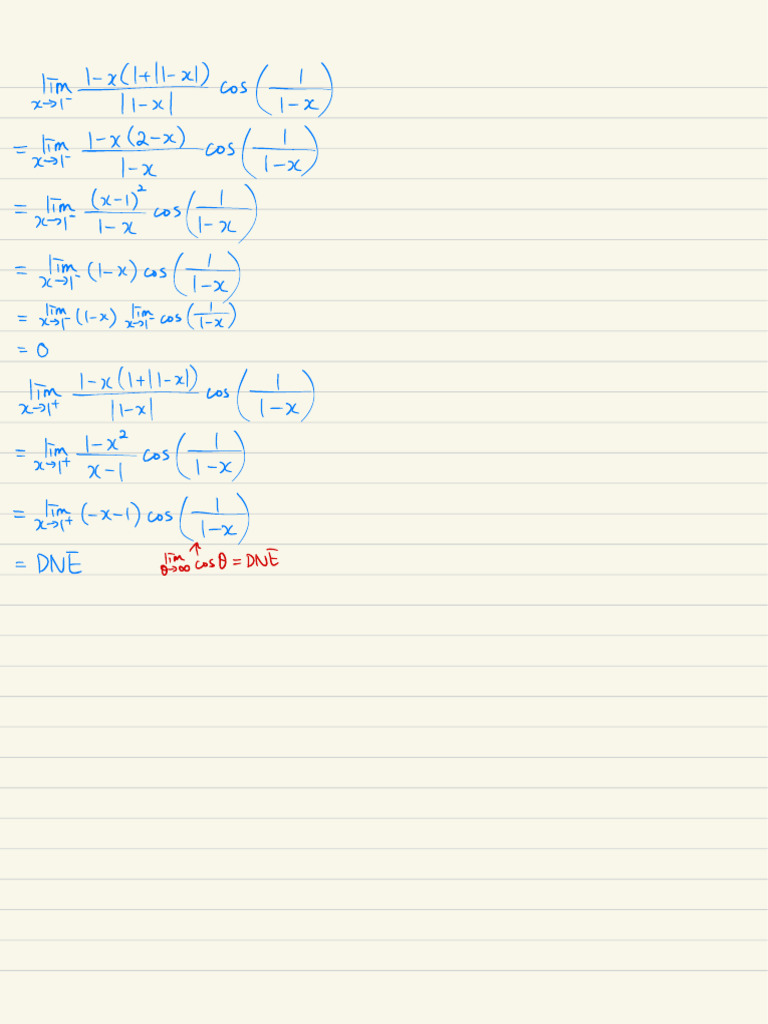 lim_{x→1⁻} \frac{1-x(1+|1-x|)}{|1-x|} cos(\frac{1}{1-x})
= lim_{x→1⁻} \frac{1-x(2-x)}{1-x} cos(\frac{1}{1-x})
= lim_{x→1⁻} \frac{(x-1)^2}{1-x} cos(\frac{1}{1-x})
= lim_{x→1⁻} (1-x) cos(\frac{1}{1-x})
= lim_{x→1⁻} (1-x) lim_{x→1⁻} cos(\frac{1}{1-x})
= 0
lim_{x→1⁺} \frac{1-x(1+|1-x|)}{|1-x|} cos(\frac{1}{1-x})
= lim_{x→1⁺} \frac{1-x^2}{x-1} cos(\frac{1}{1-x})
= lim_{x→1⁺} (-x-1) cos(\frac{1}{1-x})
= DNE ↑ lim_{θ→∞} cosθ = DNE